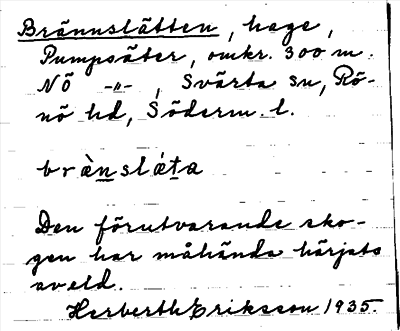 Brännslätten, hage,
Pumpsäter, omkr. 300 m.
NÖ -"-, Svärta sn, Rö-
nö hd, Söderm. l.
brànslǽta
Den förutvarande sko-
gen har måhända härjats
av eld.
Herberth Eriksson 1935.